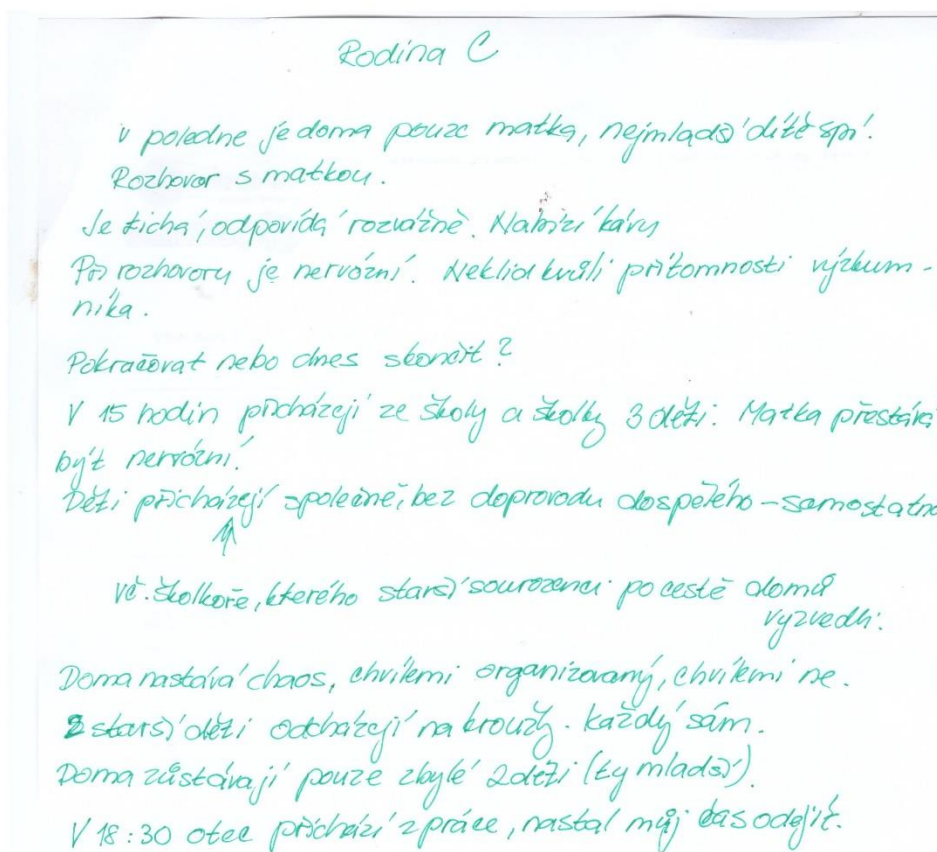 Rodina C
V poledne je doma pouze matka, nejmladší dítě spí.
Rozhovor s matkou.
Je tichá, odpovídá rozvážně. Nabízí kávu
Při rozhovoru je nervózní. Neklid kvůli přítomnosti výzkum-
níka.
Pokračovat nebo dnes skončit?
V 15 hodin přicházejí ze školy a školky 3 děti. Matka přestává
být nervózní.
Děti přicházejí společně, bez doprovodu dospělého – samostatně
vč. školkoře, kterého starší sourozenci po cestě domů
vyzvedli.
Doma nastává chaos, chvílemi organizovaný, chvílemi ne.
2 starší děti odcházejí na kroužky. Každý sám.
Doma zůstávají pouze zbylé 2 děti (ty mladší).
V 18:30 otec přichází z práce, nastal můj čas odejít.